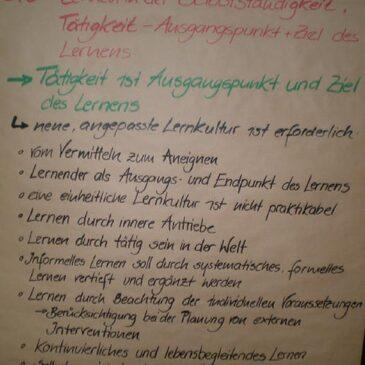 Lernen in der Selbstständigkeit,
Tätigkeit - Ausgangspunkt + Ziel des
Lernens
→ Tätigkeit ist Ausgangspunkt und Ziel
des Lernens
↳ neue, angepasste Lernkultur ist erforderlich.
• vom Vermitteln zum Aneignen
• Lernender als Ausgangs- und Endpunkt des Lernens
• eine einheitliche Lernkultur ist nicht praktikabel
• Lernen durch innere Antriebe
• Lernen durch tätig sein in der Welt
• Informelles Lernen soll durch systematisches, formelles
Lernen vertieft und ergänzt werden
• Lernen durch Beachtung der individuellen Voraussetzungen
→ Berücksichtigung bei der Planung von externen
Interventionen
• Kontinuierliches und lebensbegleitendes Lernen